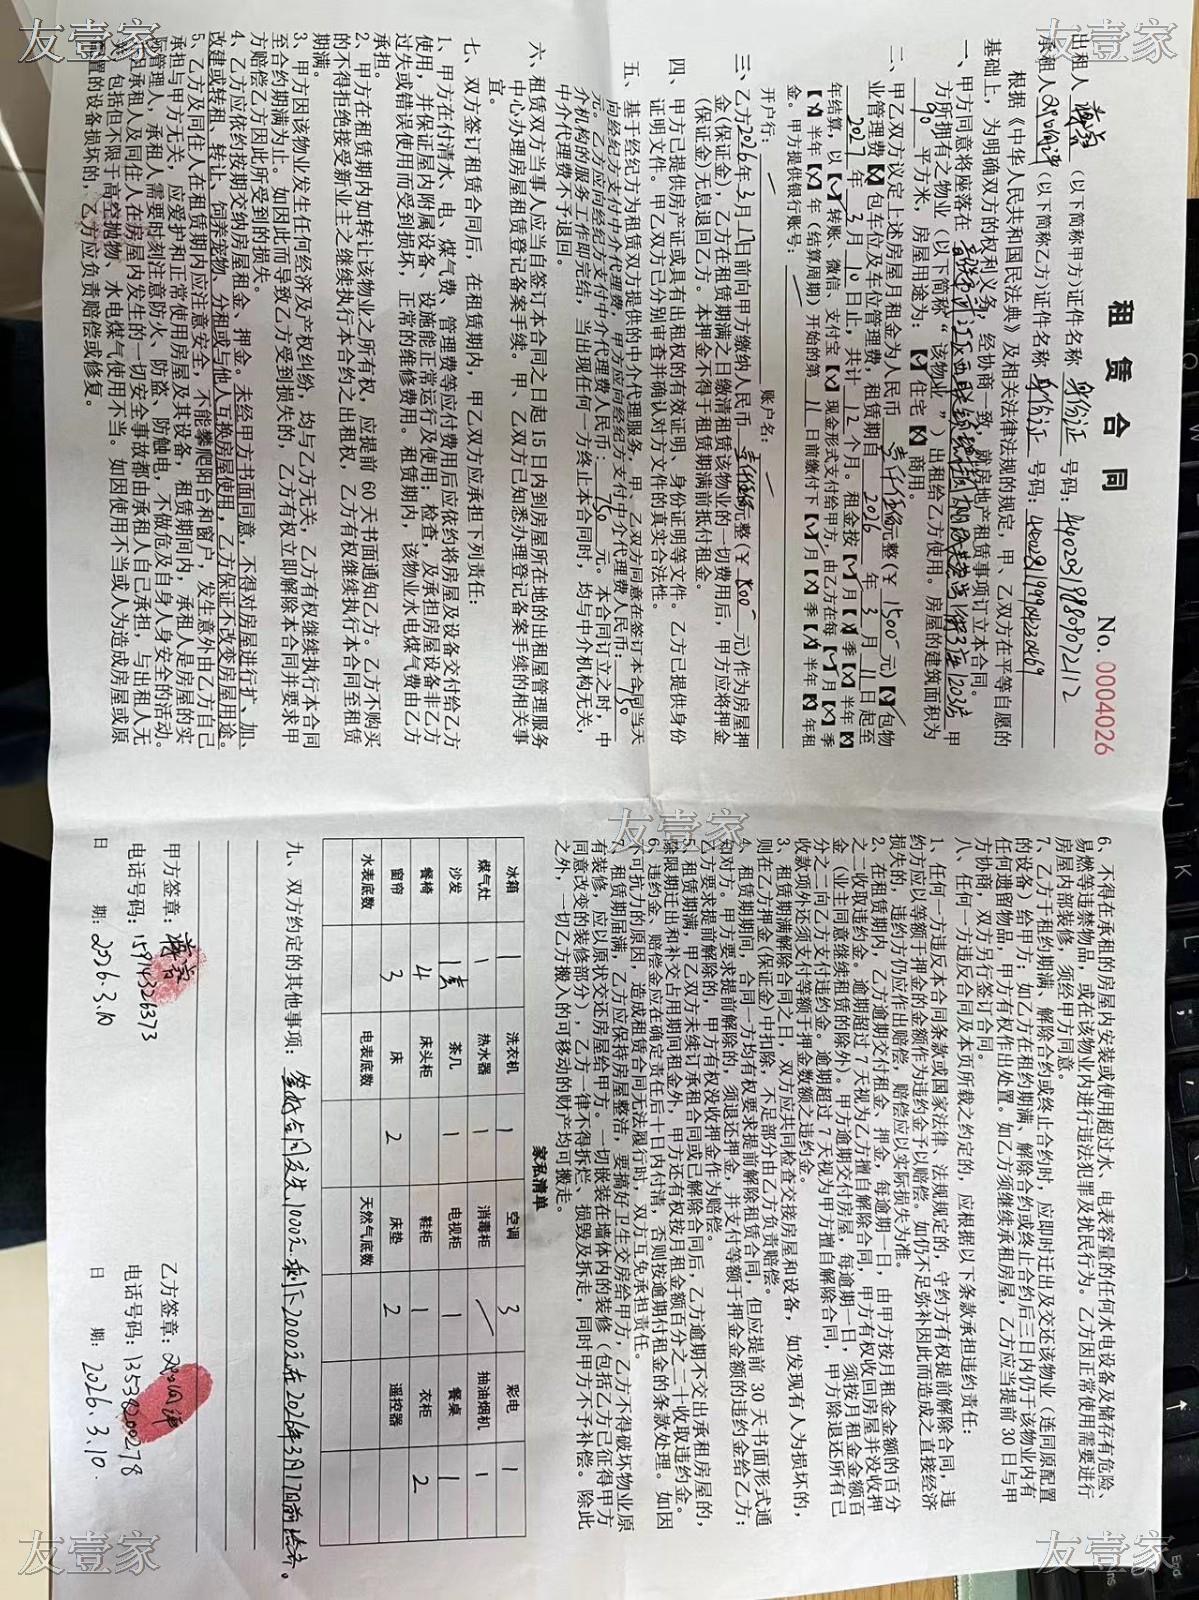 租赁合同
No. 0004026
出租人 (以下简称甲方)证件名称 身份证 号码: 440203198809072112
承租人 (以下简称乙方)证件名称 身份证 号码:
根据《中华人民共和国民法典》及相关法律法规的规定,甲、乙双方在平等自愿的
基础上,为明确双方的权利义务,经协商一致,就房地产租赁事项订立本合同。
一、甲方同意将座落在 甲
方所拥有之物业(以下简称“该物业”)出租给乙方使用。房屋的建筑面积为
90 平方米,房屋用途为:【✓】住宅【✗】商用。
二、甲乙双方议定上述房屋月租金为人民币 壹仟伍佰元整(¥ 1500 元)【✓】包物
业管理费【✗】包车位及车位管理费,租赁期自 2026 年 3 月 11 日起至
2027 年 3 月 10 日止,共计 12 个月。租金按【✓】月【✗】季【✗】半年【✗】
年结算,以【✓】转账、微信、支付宝【✓】现金形式支付给甲方,由乙方在每【✓】月【✗】季
【✗】半年【✗】年(结算周期)开始的第 11 日前缴付下【✓】月【✗】季【✗】半年【✗】年租
金。甲方提供银行账号:
开户行: 账户名:
三、乙方2026年3月17日前向甲方缴纳人民币 壹仟伍佰元整(¥ 1500 元)作为房屋押
金(保证金),乙方在租赁期满之日缴清租赁该物业的一切费用后,甲方应将押金
(保证金)无息退回乙方。本押金不得于租赁期满前抵付租金。
四、甲方已提供房产证或具有出租权的有效证明、身份证明等文件。乙方已提供身份
证明文件。甲乙双方已分别审查并确认对方文件的真实合法性。
五、基于经纪方为租赁双方提供的中介代理服务,甲、乙双方同意在签订本合同当天
向经纪方支付中介代理费,甲方应向经纪方支付中介代理费人民币: 750
元。乙方应向经纪方支付中介代理费人民币: 750 元。本合同订立之时,中
介机构的服务工作即完结,当出现任何一方终止本合同时,均与中介机构无关,
中介代理费不予退回。
六、租赁双方当事人应当自签订本合同之日起 15 日内到房屋所在地的出租屋管理服务
中心办理房屋租赁登记备案手续。甲、乙双方已知悉办理登记备案手续的相关事
宜。
七、双方签订租赁合同后,在租赁期内,甲乙双方应承担下列责任:
1、甲方在付清水、电、煤气费、管理费等应付费用后应依约将房屋及设备交付给乙方
使用,并保证屋内附属设备、设施能正常运行及使用;检查,及承担房屋设备非乙方
过失或错误使用而受到损坏,正常的维修费用。租赁期内,该物业水电煤气费由乙方
承担。
2、甲方在租赁期内如转让该物业之所有权,应提前 60 天书面通知乙方。乙方不购买
的不得拒绝接受新业主之继续执行本合约之出租权,乙方有权继续执行本合同至租赁
期满。
3、甲方因该物业发生任何经济及产权纠纷,均与乙方无关,乙方有权继续执行本合同
至合约期满为止。如因此而导致乙方受到损失的,乙方有权立即解除本合同并要求甲
方赔偿乙方因此所受到的损失。
4、乙方应依约按期交纳房屋租金、押金。未经甲方书面同意,不得对房屋进行扩、加、
改建或转租、转让、饲养宠物,分租或与他人互换房屋使用,乙方保证不改变房屋用途。
5、乙方及同住人在租赁期内应注意安全,不能攀爬阳台和窗户,发生意外由乙方自己
承担与甲方无关,应爱护和正常使用房屋及其设备,租赁期间内,承租人是房屋的实
际管理人,承租人需要时刻注意防火、防盗、防触电,不做危及自身人身安全的活动。
如出承租人及同住人在房屋内发生的一切安全事故都由承租人自己承担,与出租人无
关,包括但不限于高空抛物、水电煤气使用不当。如因使用不当或人为造成房屋或原
配置的设备损坏的,乙方应负责赔偿或修复。
6、不得在承租的房屋内安装或使用超过水、电表容量的任何水电设备及储存有危险、
易燃等违禁物品,或在该物业内进行违法犯罪及扰民行为。乙方因正常使用需要进行
房屋内部装修,须经甲方同意。
7、乙方于租约期满、解除合约或终止合约时,应即时迁出及交还该物业(连同原配置
的设备)给甲方;如乙方在租约期满、解除合约或终止合约后三日内仍于该物业内有
任何遗留物品,甲方有权作出处置。如乙方须继续承租房屋,乙方应当提前 30 日与甲
方协商,双方另行签订合同。
八、任何一方违反合同及本页所载之约定的,应根据以下条款承担违约责任:
1、任何一方违反本合同条款或国家法律、法规规定的,守约方有权提前解除合同,违
约方应以等额于押金的金额作为违约金予以赔偿。如仍不足弥补因此而造成之直接经济
损失的,违约方仍应作出赔偿,赔偿应以实际损失为准。
2、在租赁期内,乙方逾期交付租金、押金,每逾期一日,由甲方按月租金金额的百分
之二收取违约金。逾期超过 7 天视为乙方擅自解除合同,甲方有权收回房屋并没收押
金(业主同意继续租赁的除外)。甲方逾期交付房屋,每逾期一日,须按月租金金额百
分之二向乙方支付违约金。逾期超过 7 天视为甲方擅自解除合同,甲方除退还所有已
收款项外还须支付等额于押金数额之违约金。
3、租赁期满解除合同之日,双方应共同检查交接房屋和设备,如发现有人为损坏的,
则在乙方押金(保证金)中扣除,不足部分由乙方负责赔偿。
4、租赁期期间,合同一方均有权要求提前解除租赁合同,但应提前 30 天书面形式通
知对方。甲方要求提前解除的,须退还押金,并支付等额于押金金额的违约金给乙方;
乙方要求提前解除的,甲方有权没收押金作为赔偿。
5、租赁期满,甲乙双方未续订承租合同或已解除合同后,乙方逾期不交出承租房屋的,
除限期迁出和补交占用期间租金外,甲方还有权按月租金额百分之二十收取违约金。
6、违约金、赔偿金应在确定责任后十日内付清,否则按逾期付租金的条款处理。如因
不可抗力的原因,造成租赁合同无法履行时,双方互免承担责任。
7、租赁期届满,乙方应保持房屋整洁,要搞好卫生交房给甲方,乙方不得破坏物业原
有装修,应以原状交还房屋给甲方。一切嵌装在墙体内的装修(包括乙方已征得甲方
同意改变的装修部分),乙方一律不得拆烂、损毁及拆走,同时甲方不予补偿。除此
之外,一切乙方搬入的可移动的财产均可搬走。
家私清单
冰箱 1 洗衣机 1 空调 3 彩电 1
煤气灶 1 热水器 1 消毒柜 抽油烟机 1
沙发 1套 茶几 1 电视柜 1 餐桌 1
餐椅 4 床头柜 鞋柜 1 衣柜 2
窗帘 3 床 2 床垫 2 遥控器
水表底数 电表底数 天然气底数
九、双方约定的其他事项: 签好合同支付1000元,剩下2000元在2026年3月17日前给齐。
甲方签章: 乙方签章:
电话号码: 15914326373 电话号码: 13538200278
日 期: 2026.3.10 日 期: 2026.3.10.
友壹家
友壹家
友壹家
友壹家
友壹家